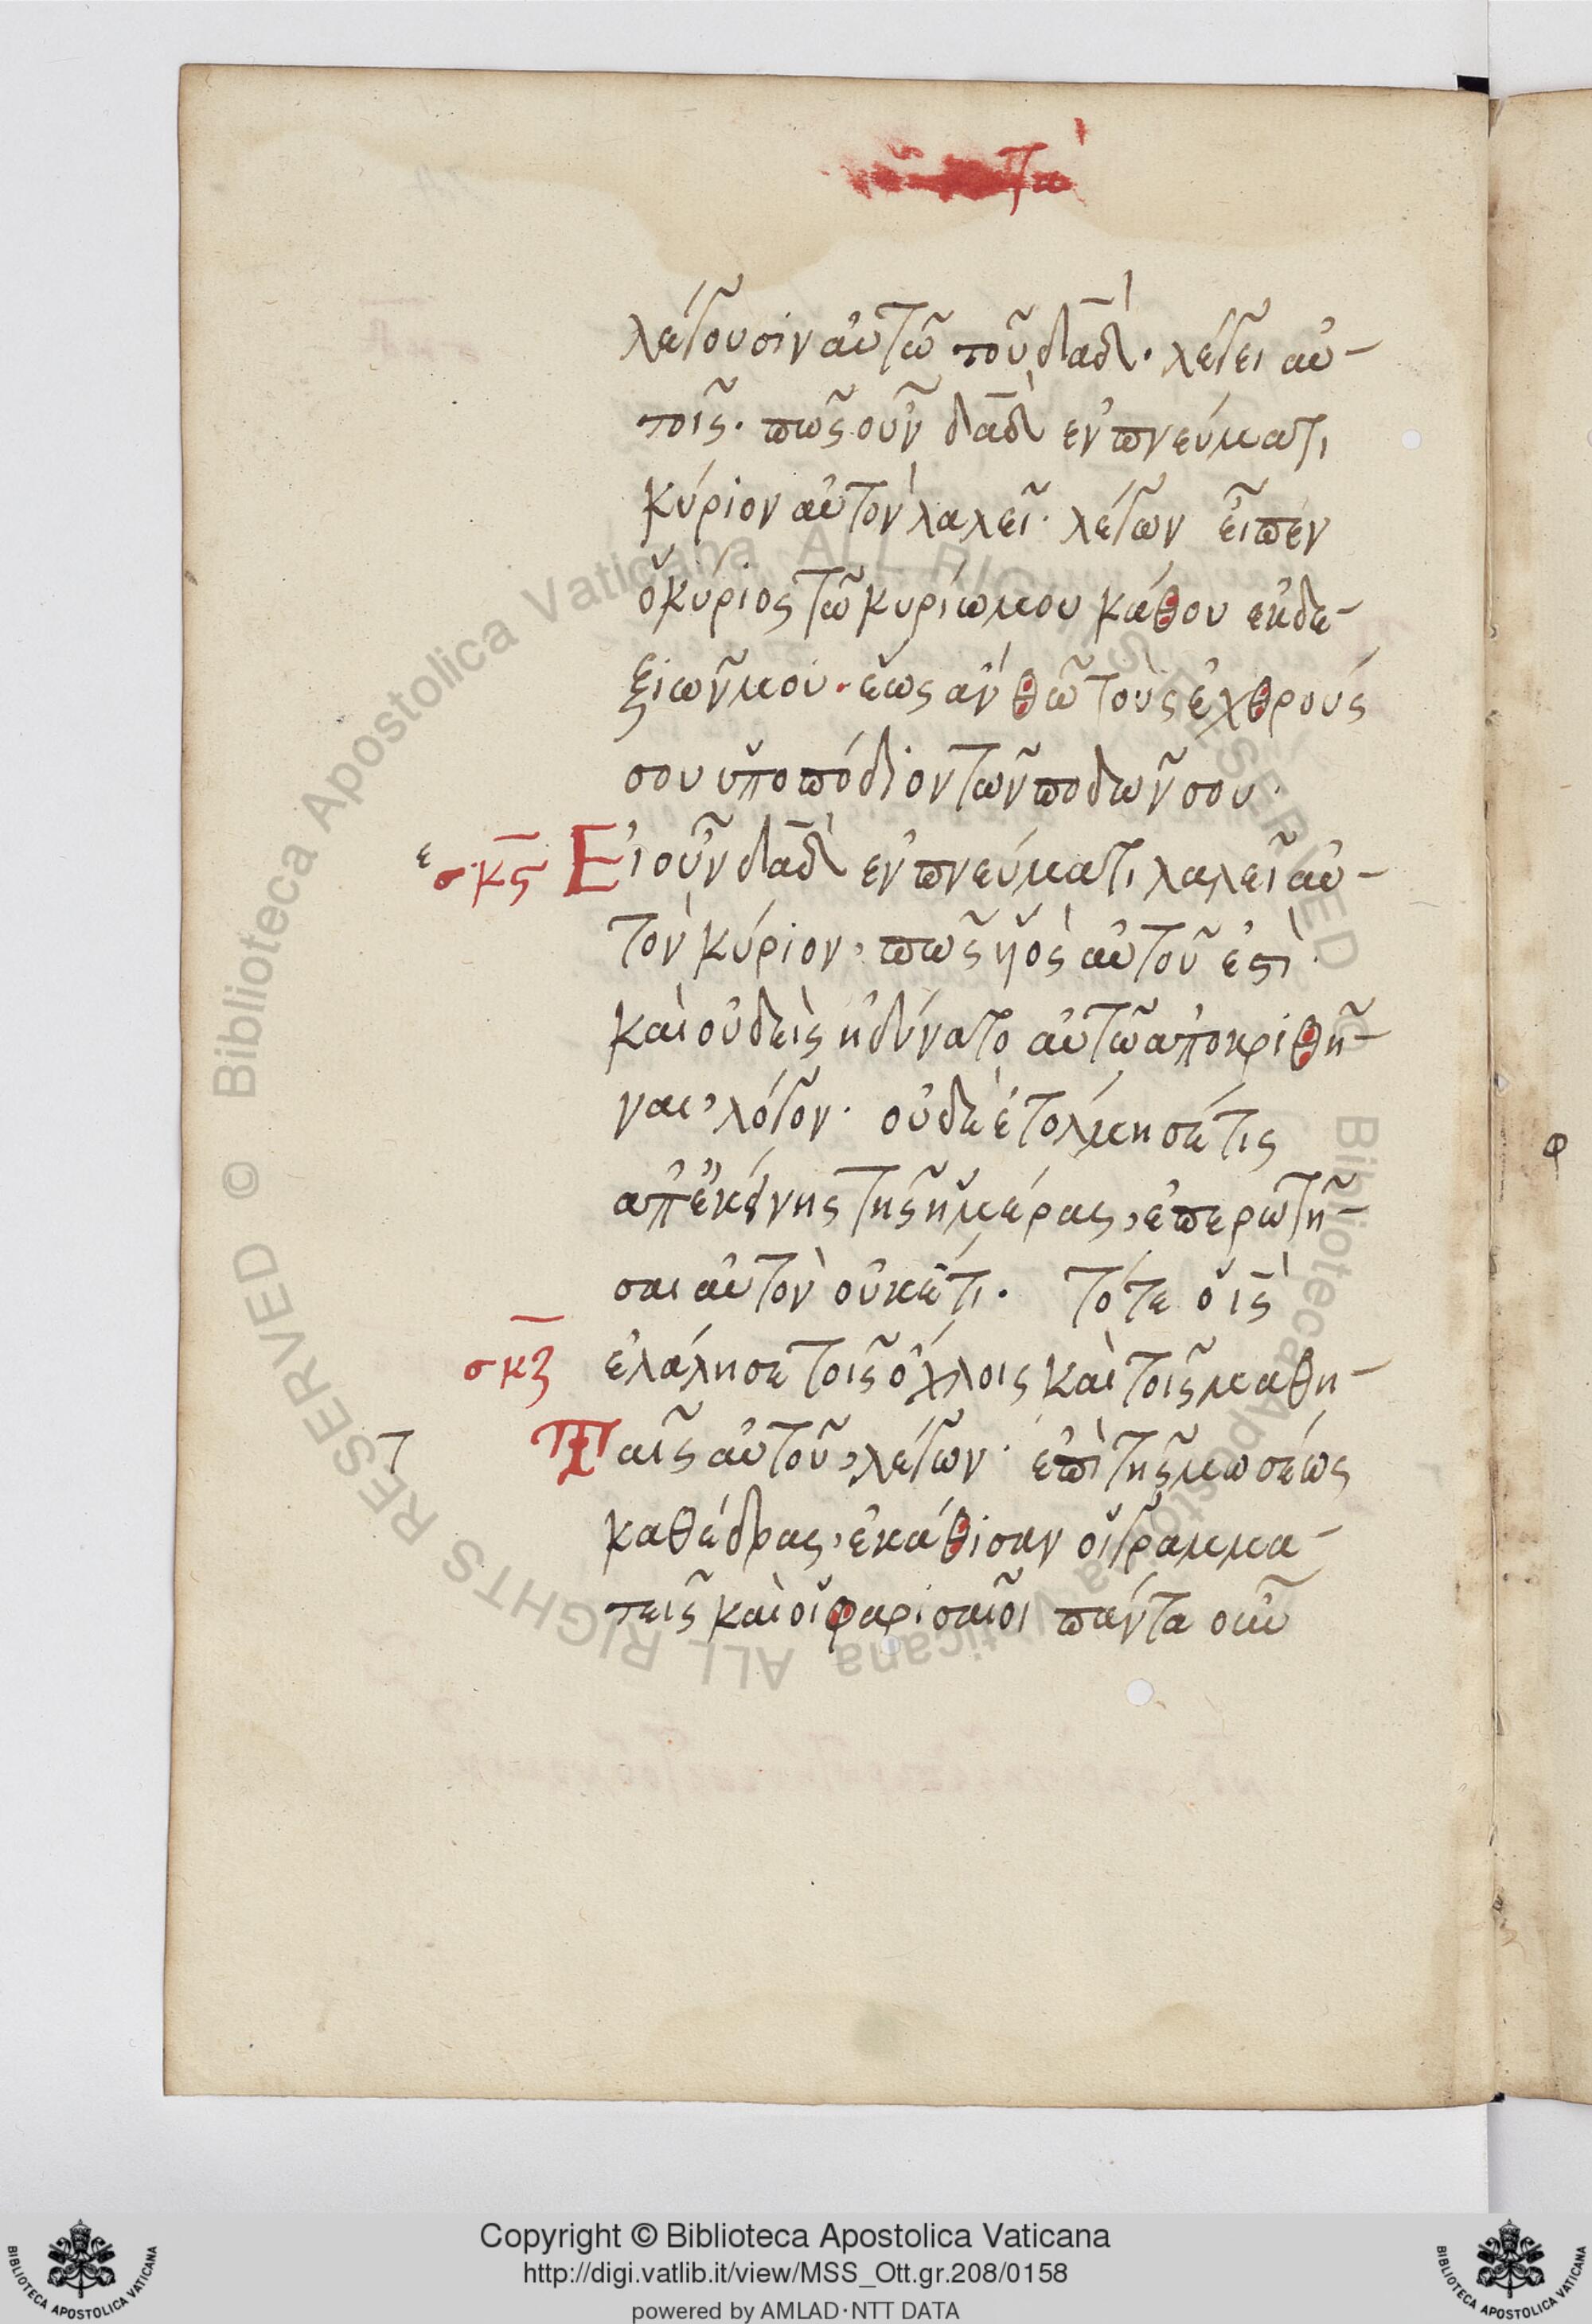 λέγουσιν αὐτῶ τοῦ δᾱδ̀· λέγει αὐ-
τοῖς· πῶς οὖν δᾱδ̀ ἐν πνεύματι
κύριον αὐτὸν λαλεῖ· λέγων εἶπεν
ὁ κύριος τῶ κυρίω μου κάθου ἐκ δε-
ξιῶν μου· ἕως ἂν θῶ τοὺς ἐχθρούς
σου ὑποπόδιον τῶν ποδῶν σου·
ε σκς Εἰ οὖν δᾱδ̀ ἐν πνεύματι λαλεῖ αὐ-
τὸν κύριον, πῶς ὑὸς αὐτοῦ ἐστὶ·
καὶ οὐδεὶς ἠδύνατο αὐτῶ ἀποκριθῆ-
ναι, λόγον· οὐδὲ ἐτόλμησέ τις
ἀπ' ἐκείνης τῆς ἡμέρας, ἐπερωτῆ-
σαι αὐτὸν οὐκέτι· Τότε ὁ ῑς̀
σκζ ἐλάλησε τοῖς ὄχλοις καὶ τοῖς μαθη-
Ταῖς αὐτοῦ, λέγων· ἐπὶ τῆς μωσέως
καθέδρας, ἐκάθισαν οἱ γραμμα-
τεῖς καὶ οἱ φαρισαῖοι πάντα οὖν
Copyright © Biblioteca Apostolica Vaticana
http://digi.vatlib.it/view/MSS_Ott.gr.208/0158
powered by AMLAD·NTT DATA
BIBLIOTECA APOSTOLICA VATICANA
BIBLIOTECA APOSTOLICA VATICANA
© Biblioteca Apostolica Vaticana ALL RIGHTS RESERVED
© Biblioteca Apostolica Vaticana ALL RIGHTS RESERVED